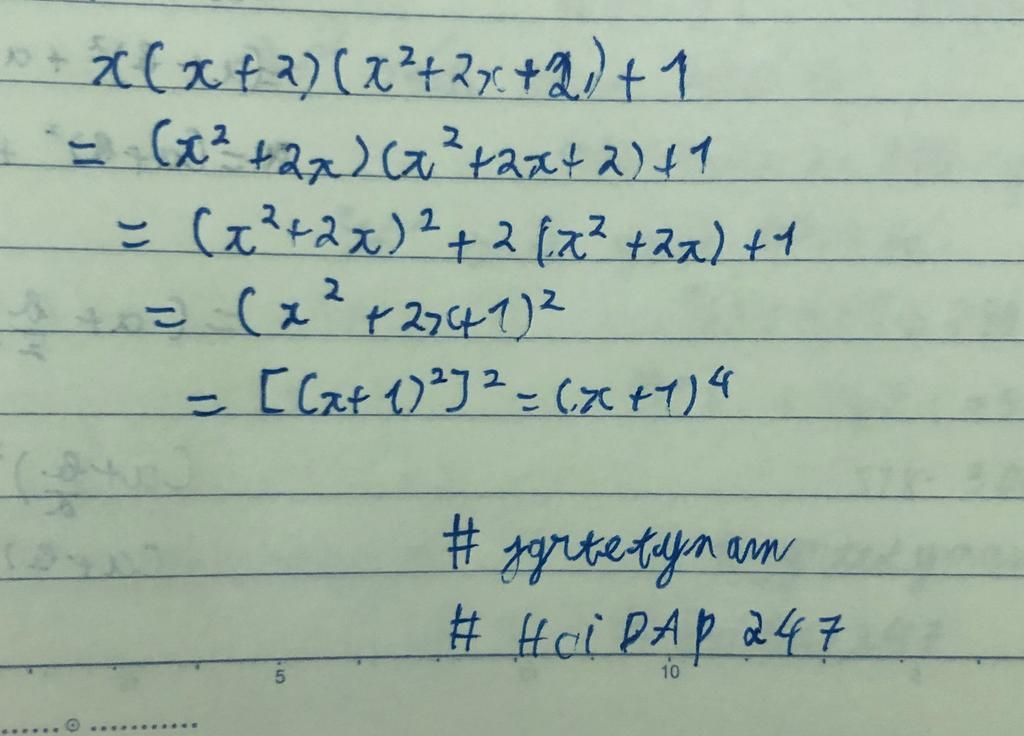 x(x+2)(x²+2x+2)+1
= (x²+2x)(x²+2x+2)+1
= (x²+2x)²+2(x²+2x)+1
= (x²+2x+1)²
= [(x+1)²]² = (x+1)⁴
# jgrtetynam
# Hoi DAP 247
5 10